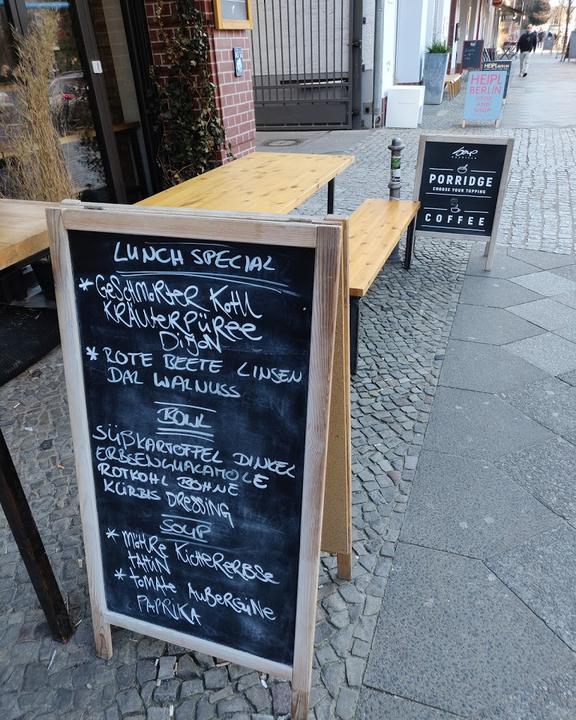 LUNCH SPECIAL
* GESCHMORTER KOHL
KRÄUTERPÜREE
DIJON
* ROTE BEETE LINSEN
DAL WALNUSS
BOWL
SÜßKARTOFFEL DINKEL
ERBSENGUACAMOLE
ROTKOHL BOHNE
KÜRBIS DRESSING
SOUP
* MÖHRE KICHERERBSE
TAHIN
* TOMATE AUBERGINE
PAPRIKA
PORRIDGE
CHOOSE YOUR TOPPING
COFFEE
HEIPL
BERLIN